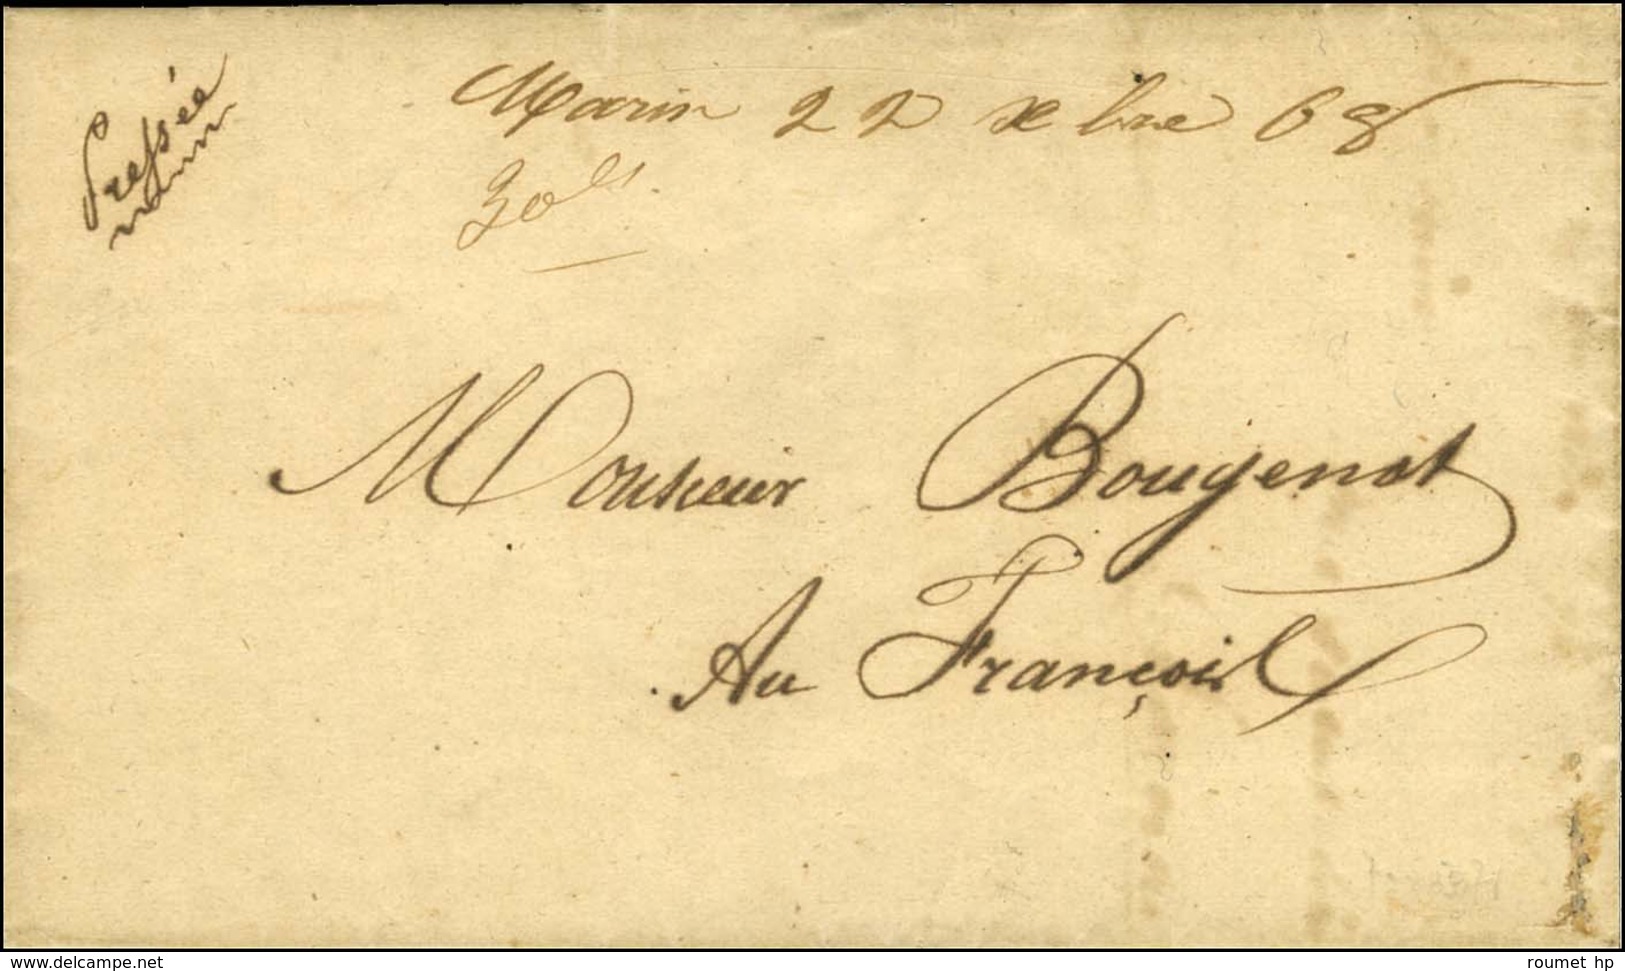 Pressée
Marin 22 Xbre 68
30cs.
Monsieur Bougenot
Au François
www.delcampe.net
roumet hp